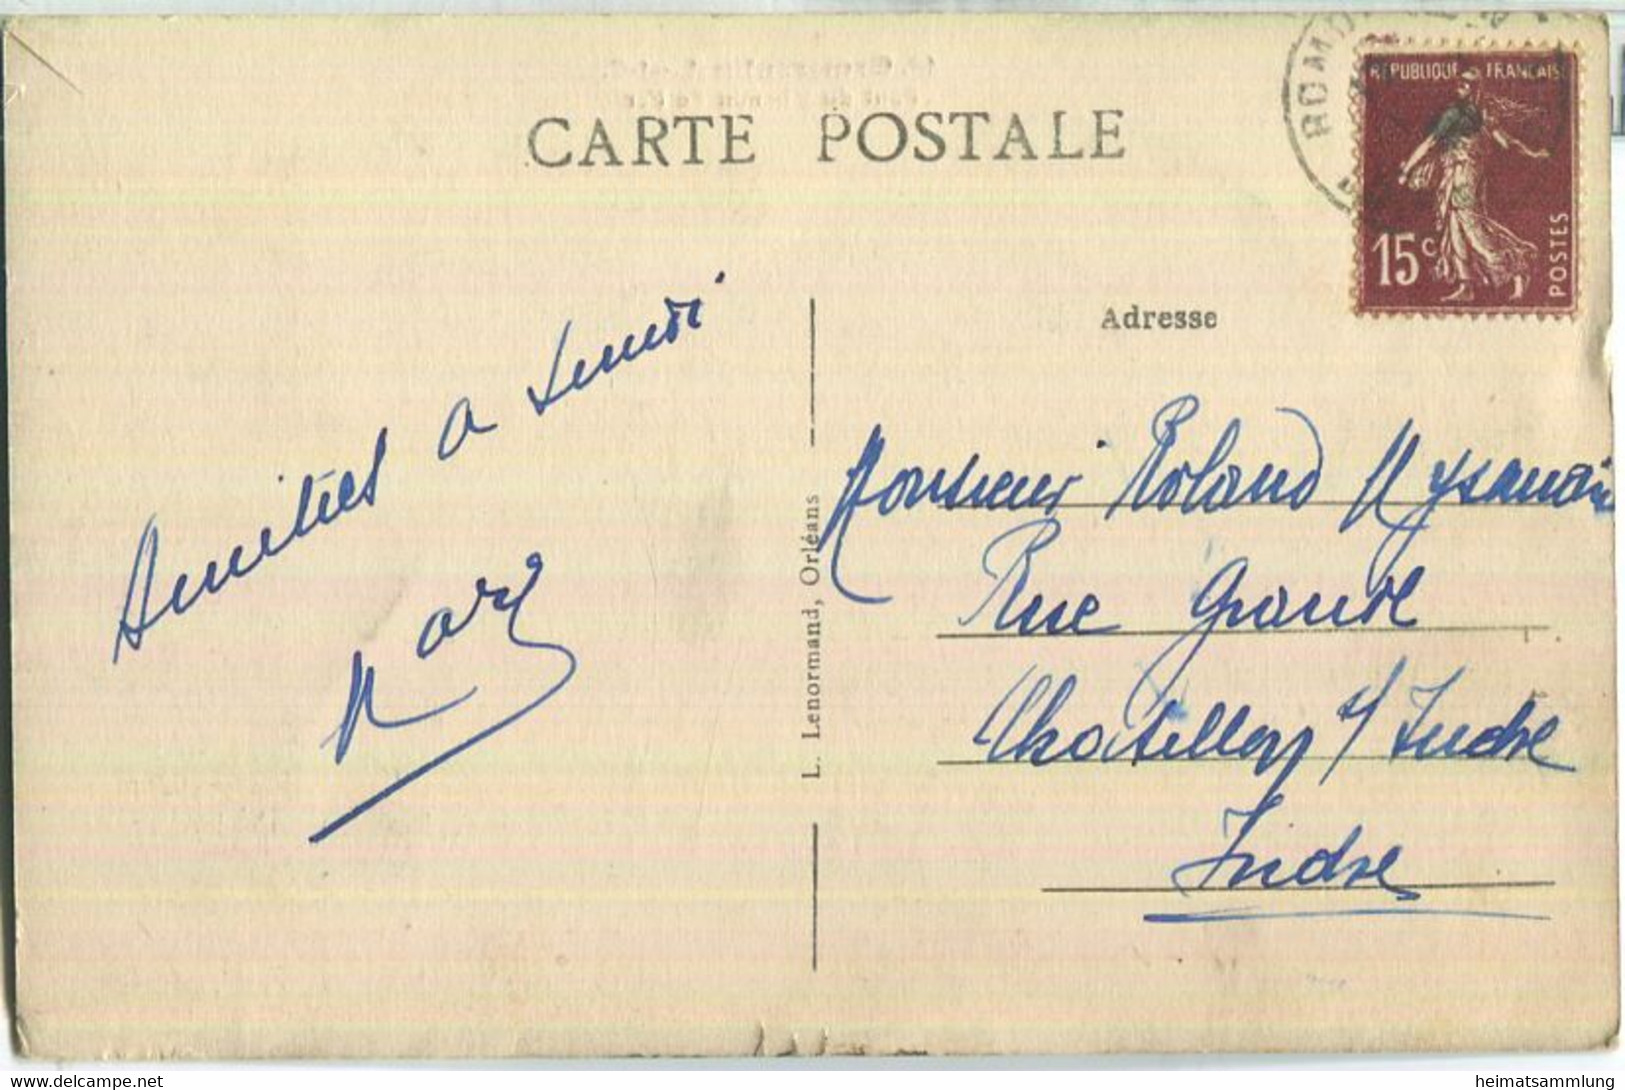 CARTE POSTALE
RÉPUBLIQUE FRANÇAISE
15c
POSTES
Adresse
Amitiés a
L. Lenormand, Orléans
Monsieur Roland
Rue Grande
Chatillon s/ Indre
Indre
delcampe.net
heimatsammlung